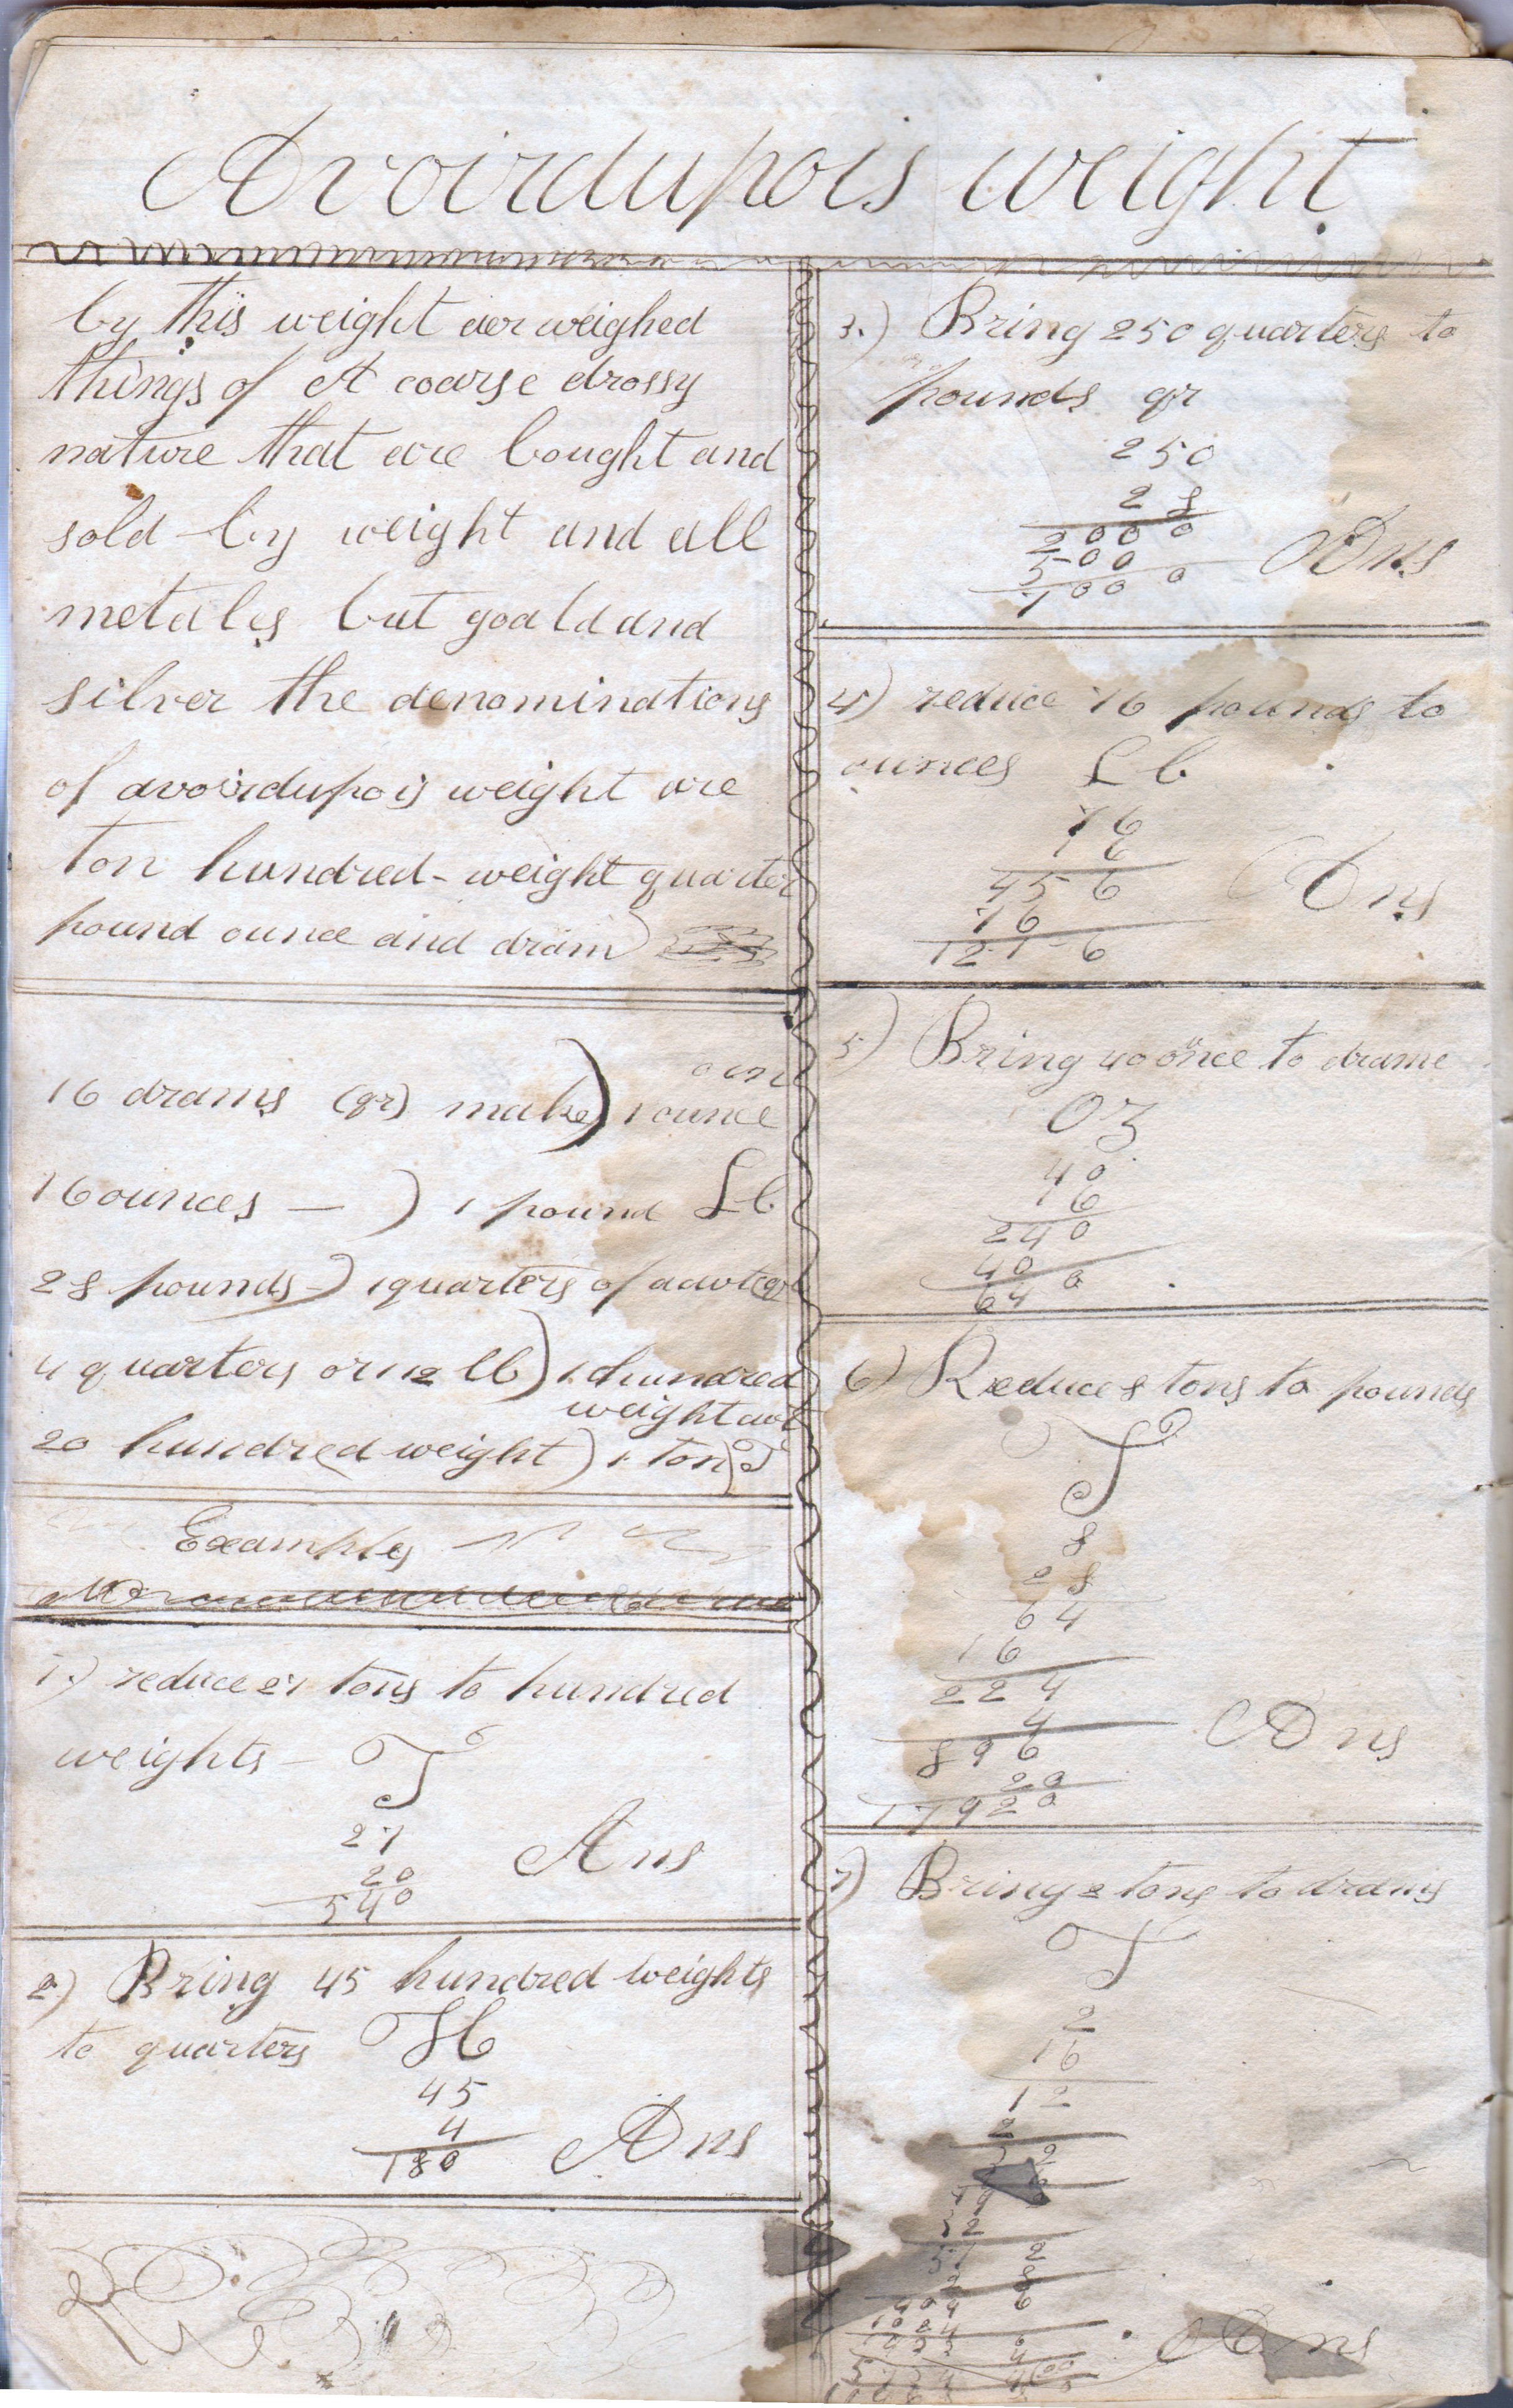 Avoirdupois weight
by this weight aer weighed
things of A coarse drossy
nature that are bought and
sold by weight and all
metales but goald and
silver the denominations
of avoirdupois weight are
ton hundred-weight quarter
pound ounce and dram
16 drams (gr) make) 1 ounce
16 ounces — ) 1 pound Lb
28 pounds -) 1 quarters of
4 quarters or 112 lb) 1 hundred
weight
20 hundred weight ) 1 ton) T
Examples
1.) reduce 27 tons to hundred
weights — T
27
20 Ans
540
2.) Bring 45 hundred weights
to quarters H
45
4
180 Ans
3.) Bring 250 quarters to
pounds qr
250
28
2000
500 Ans
7000
4) reduce 76 pounds to
ounces Lb
76
16
456 Ans
76
1216
5) Bring 40 once to drame
OZ
40
16
240
40
640
6) Reduce 8 tons to pounds
T
8
28
64
16
224
4
896 Ans
20
17920
7) Bring 2 tons to drams
T
2
16
12
2
32
Ans